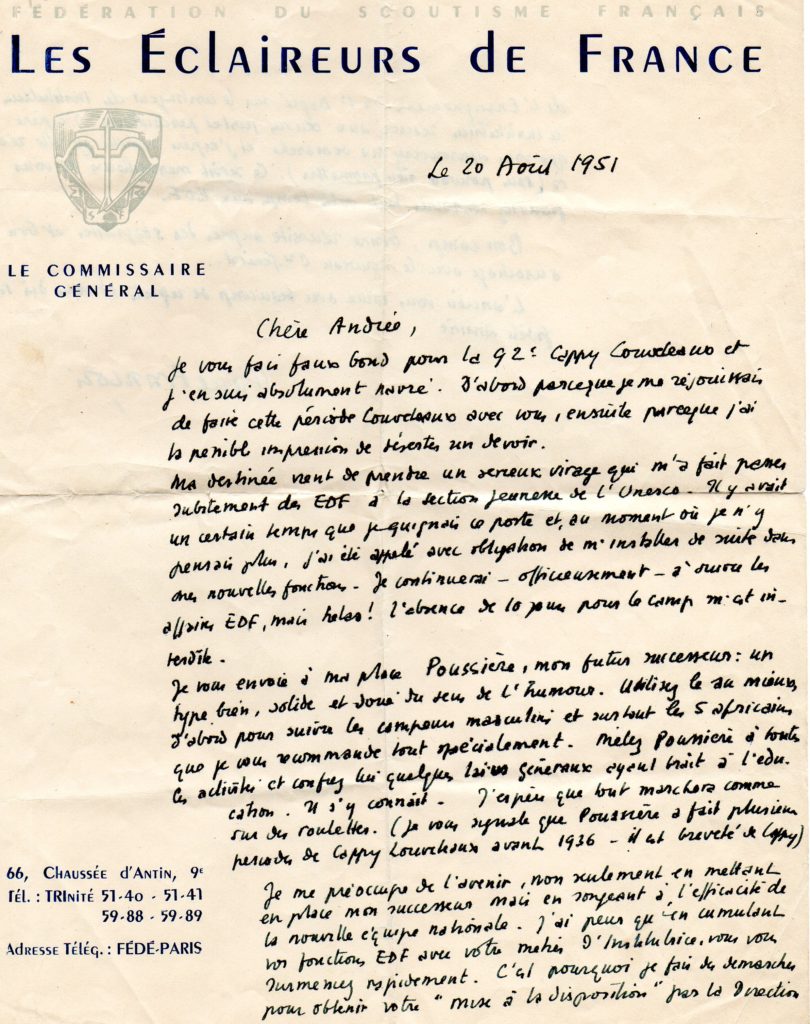 FÉDÉRATION DU SCOUTISME FRANÇAIS
LES ÉCLAIREURS DE FRANCE
Le 20 Août 1951
LE COMMISSAIRE
GÉNÉRAL
Chère Andrée,
Je vous fais faux bond pour la 92e Cappy Louveteaux et
j'en suis absolument navré. D'abord parceque je me réjouissais
de faire cette période Louveteaux avec vous, ensuite parceque j'ai
la penible impression de déserter un devoir.
Ma destinée vient de prendre un serieux virage qui m'a fait passer
subitement des EDF à la section jeunesse de l'Unesco. Il y avait
un certain temps que je guignais ce poste et, au moment où je n'y
pensais plus, j'ai été appelé avec obligation de m'installer de suite dans
mes nouvelles fonctions - Je continuerai - officieusement - à suivre les
affaires EDF, mais helas! l'absence de 10 jours pour le camp m'est in-
terdite.
Je vous envoie à ma place Poussière, mon futur successeur: un
type bien, solide et doué du sens de l'humour. Utilisez le au mieux
d'abord pour suivre les campeurs masculins et surtout les 5 africains
que je vous recommande tout spécialement. Mêlez Poussière à toutes
les activités et confiez lui quelques laïus généraux ayant trait à l'édu-
cation. Il s'y connait. J'espère que tout marchera comme
sur des roulettes. (Je vous signale que Poussière a fait plusieurs
periodes de Cappy Louveteaux avant 1936 - il est breveté de Cappy)
Je me préoccupe de l'avenir, non seulement en mettant
en place mon successeur mais en songeant à l'efficacité de
la nouvelle équipe nationale. J'ai peur qu'en cumulant
vos fonctions EDF avec votre métier d'Institutrice, vous vous
surmeniez rapidement. C'est pourquoi je fais des demarches
pour obtenir votre "mise à la disposition" par la Direction
66, CHAUSSÉE D'ANTIN, 9e
TÉL. : TRINITÉ 51-40 - 51-41
59-88 - 59-89
ADRESSE TÉLÉG. : FÉDÉ-PARIS